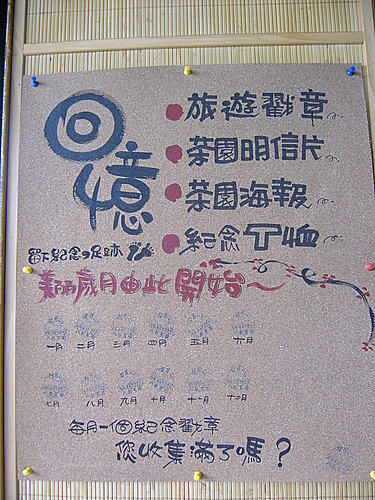 回憶
旅遊戳章
茶園明信片
茶園海報
紀念T恤
留下紀念の足跡
美丽歲月由此開始~
一月 二月 三月 四月 五月 六月
七月 八月 九月 十月 十一月 十二月
每月一個紀念戳章
您收集滿了嗎?